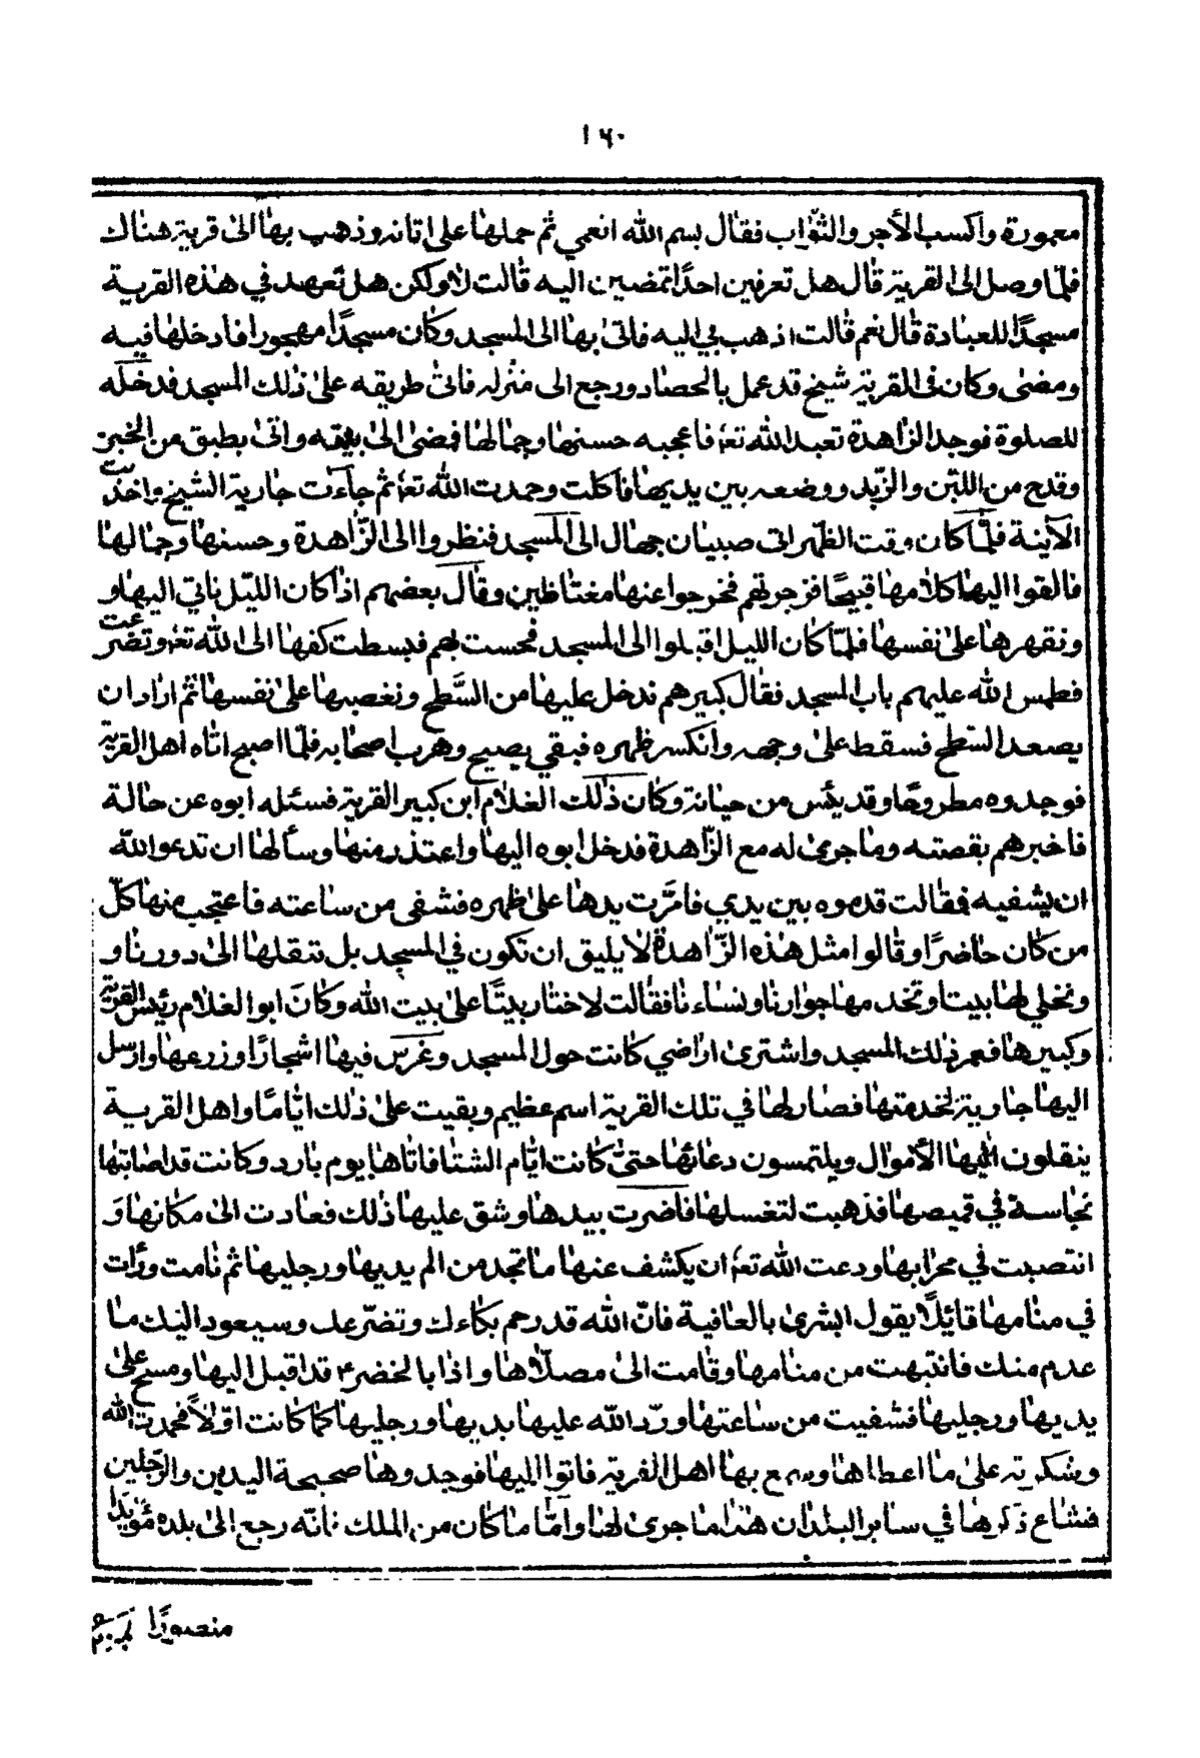 ١٦٠
معمورة واكسب الأجر والثّواب فقال بسم الله انعمي ثم حملها على اتانه وذهب بها الى قرية هناك
فلمّا وصل الى القرية قال هل تعرفين احدًا تمضين اليه قالت لا ولكن هل تعهد في هذه القرية
مسجدًا للعبادة قال نعم قالت اذهب بي اليه فاتى بها الى المسجد وكان مسجدًا مهجورا فادخلها فيه
ومضى وكان في القرية شيخ قد عمل بالحصاد ورجع الى منزله فاتى طريقه على ذلك المسجد فدخله
للصلوة فوجد الزاهدة تعبد الله تعا فاعجبه حسنها وجمالها فمضى الى بيته واتى بطبق من الخبز
وقدح من اللبن والزبد ووضعه بين يديها فاكلت وحمدت الله تعا ثم جاءت جارية الشيخ واخذت
الآنية فلمّا كان وقت الظهر اتى صبيان جهال الى المسجد فنظروا الى الزّاهدة وحسنها وجمالها
فالقوا اليها كلامها قبيحًا فزجرتهم فخرجوا عنها مغتاظين وقال بعضهم اذا كان الليل ناتي اليها و
ونقهرها على نفسها فلمّا كان الليل اقبلوا الى المسجد فحست بهم فبسطت كفها الى الله تعا وتضرعت
فطمس الله عليهم باب المسجد فقال كبيرهم ندخل عليها من السَّطح ونغصبها على نفسها ثم اراد ان
يصعد السّطح فسقط على وجهه وانكسر ظهره فبقي يصيح وهرب اصحابه فلمّا اصبح اتاه اهل القرية
فوجدوه مطروحًا وقد يئس من حياته وكان ذلك الغلام ابن كبير القرية فسئله ابوه عن حالة
فاخبرهم بقصته وما جرى له مع الزّاهدة فدخل ابوه اليها واعتذر منها وسألها ان تدعو الله
ان يشفيه فقالت قدموه بين يدي فامرّت يدها على ظهره فشفى من ساعته فاعتجب منها كلّ
من كان حاضرًا وقالوا مثل هذه الزّاهدة لا يليق ان تكون في المسجد بل تنقلها الى دورنا و
ونخلي لها بيتا وتخدمها جوارنا ونساءنا فقالت لا ختار بيتًا على بيت الله وكانَ ابوا لغلام رئيس القرية
وكبيرها فعمر ذلك المسجد واشترى اراضي كانت حول المسجد وغرس فيها اشجارًا وزرعها وارسل
اليها جارية لخدمتها فصار لها في تلك القرية اسم عظيم وبقيت على ذلك ايّامًا واهل القرية
ينقلون اليها الأموال ويلتمسون دعائها حتىّ كانت ايّام الشتا فاتاها يوم بارد وكانت قد اصابتها
نجاسة في قميصها فذهبت لتغسلها فاضرت بيدها وشق عليها ذلك فعادت الى مكانها وَ
انتصبت في محرابها ودعت الله تعا ان يكشف عنها ما تجد من الم يديها ورجليها ثم نامت ورأت
في منامها قائلًا يقول ابشرى بالعافية فانّ الله قد رحم بكاءك وتضرّعك وسيعود اليك ما
عدم منك فانتبهت من منامها وقامت الى مصلّاها واذا بالخضر ع قد اقبل اليها ومسح على
يديها ورجليها فشفيت من ساعتها وردّ الله عليها يديها ورجليها كما كانت اوّلاً فحمدت الله
وشكرته على ما اعطاها وسمع بها اهل القرية فاتوا اليها فوجدوها صحيحة اليدين والرّجلين
فشاع ذكرها في ساير البلدان هذا ما جرى لها وامّا ما كان من الملك فانّه رجع الى بلده مؤيدًا
منصورًا